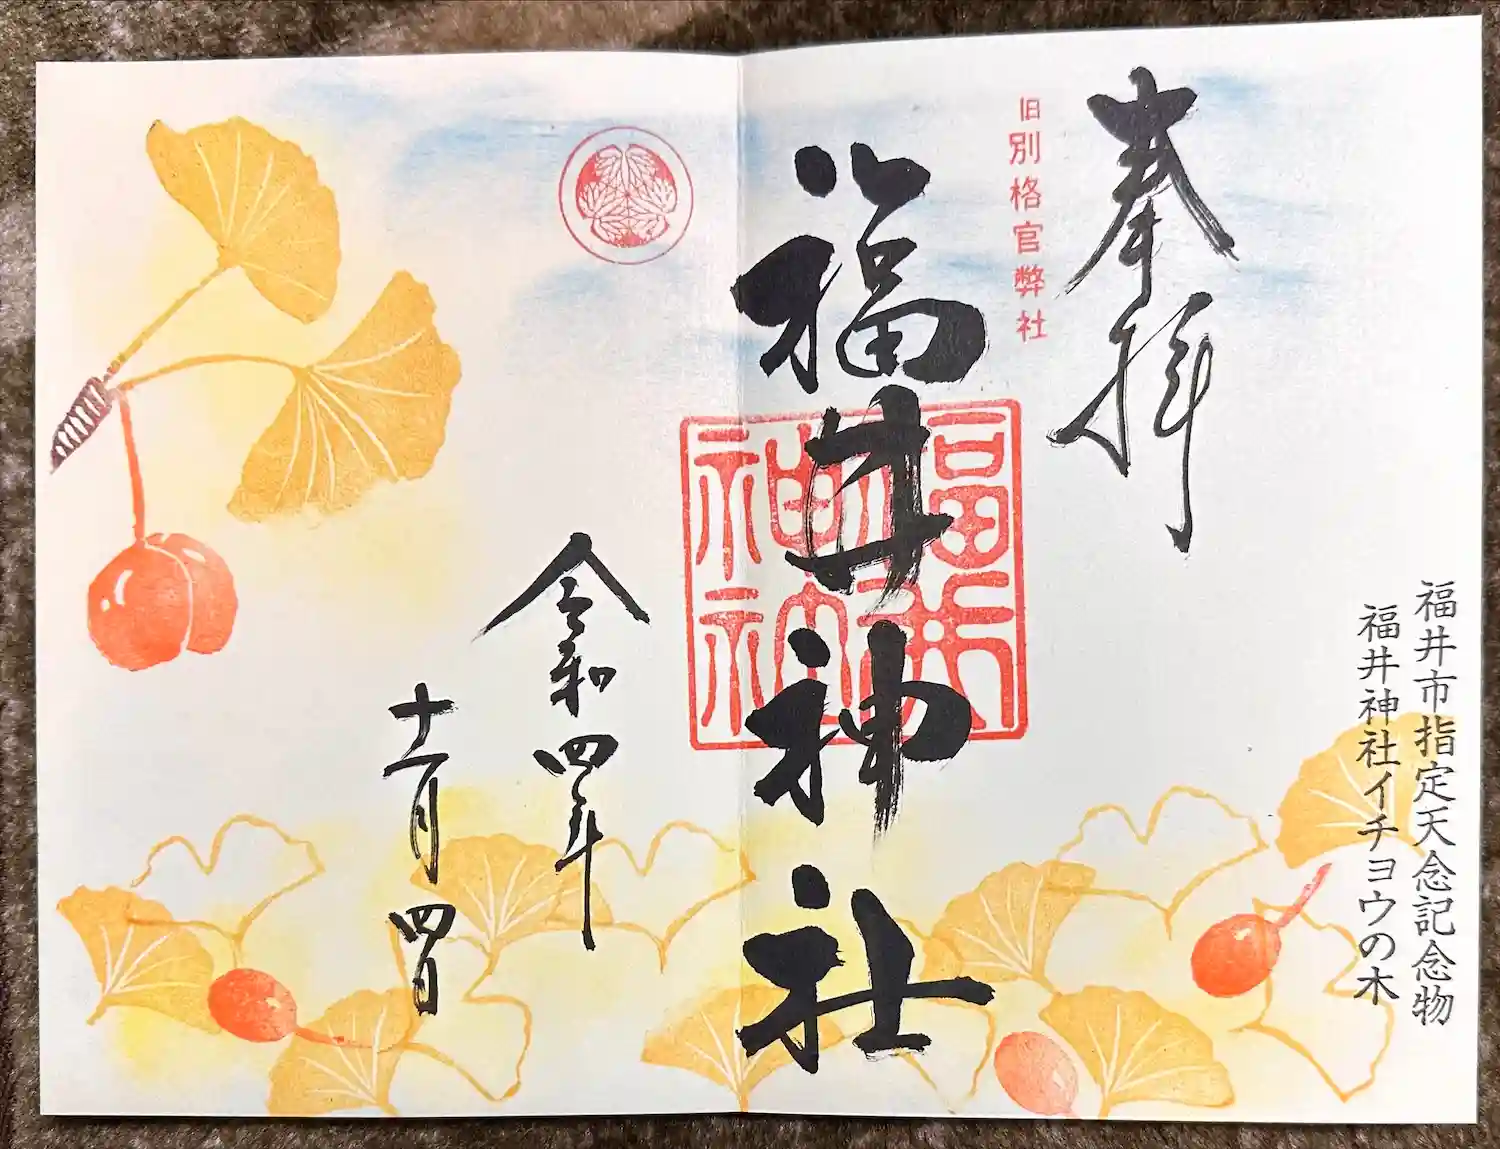 福井市指定天念記念物
福井神社イチョウの木
奉拝
旧別格官弊社
福井神社
福井
神社
令和四年
十一月四日